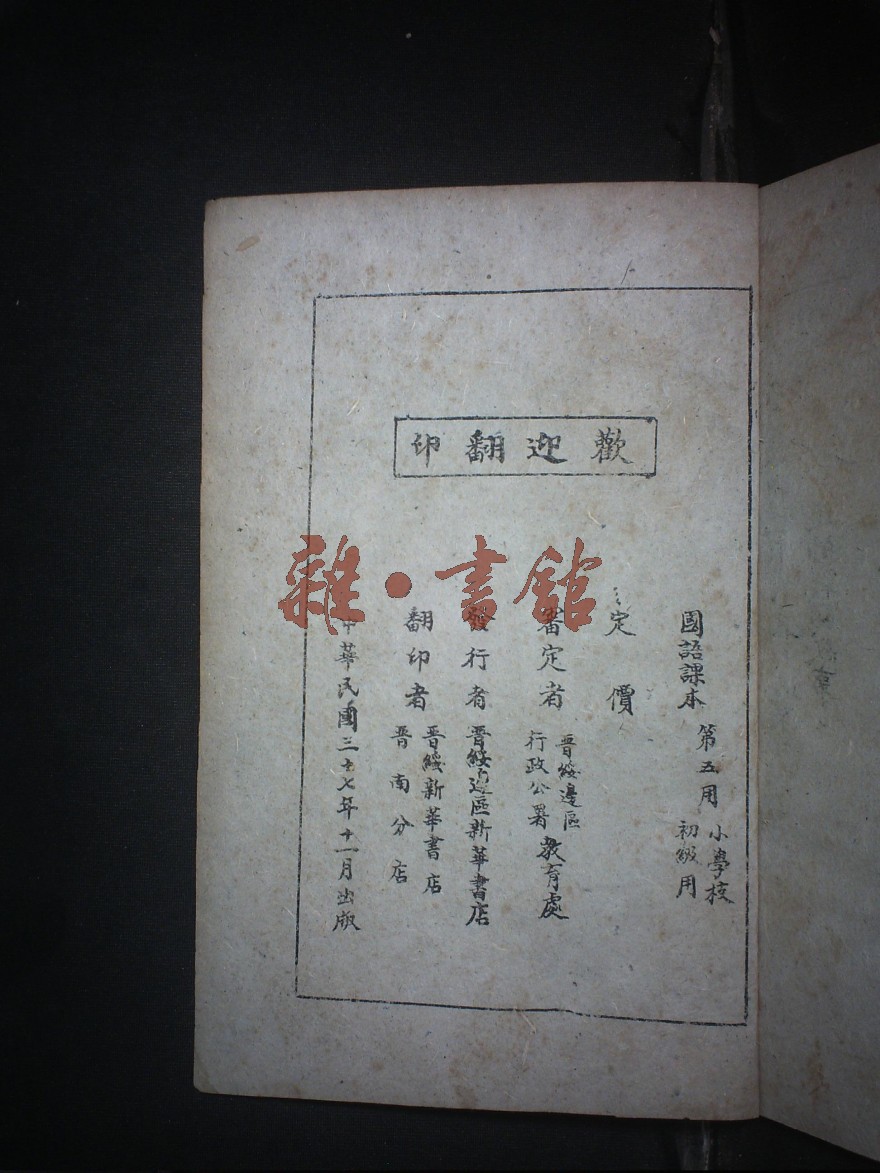 歡迎翻印
國語課本 第五用 小學校
初級用
定價
審定者 晋綏邊區
行政公署 教育處
發行者 晋綏邊區新華書店
翻印者 晋綏新華書店
晋南分店
中華民國三十七年十一月出版
雜·書館